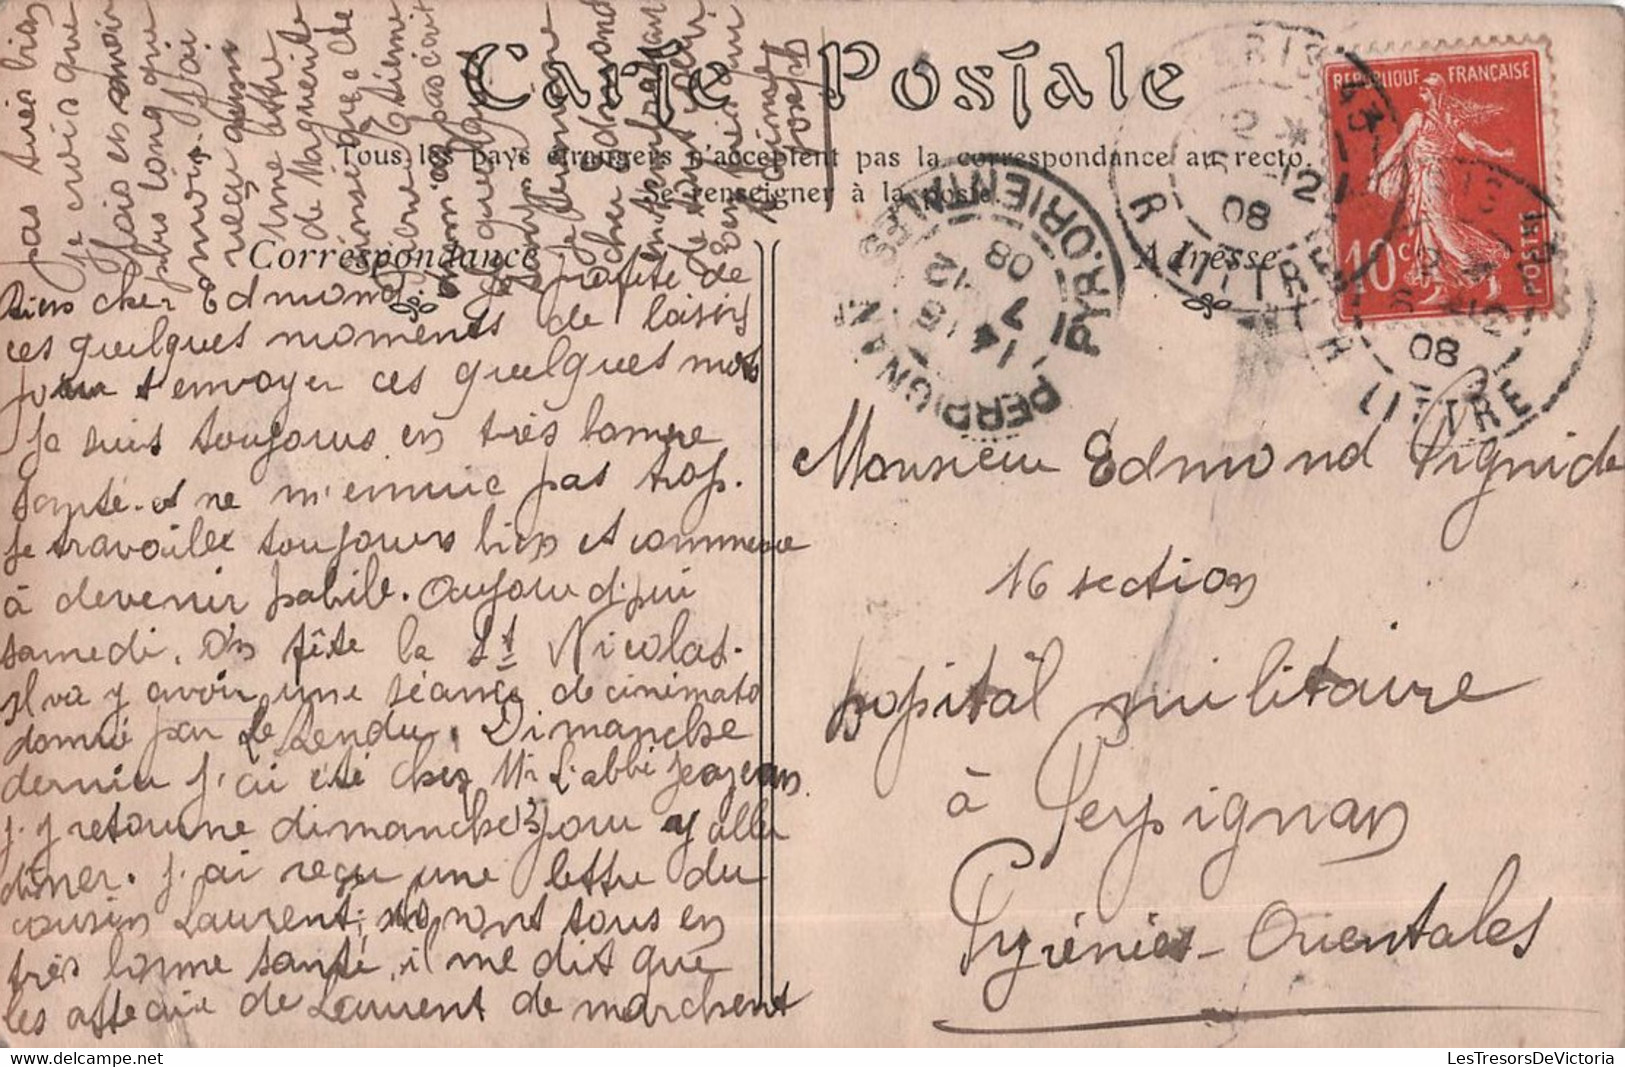 Carte Postale
Tous les pays étrangers n'acceptent pas la correspondance au recto.
Se renseigner à la poste.
Correspondance
Adresse
REPUBLIQUE FRANÇAISE
10 c
POSTES
PERPIGNAN
PYR. ORIENTALES
14 15
7 12
08
R LITTRÉ
08
Bien cher Edmond. Je profite de
ces quelques moments de loisirs
pour t'envoyer ces quelques mots
Je suis toujours en très bonne
santé. et ne m'ennuie pas trop.
Je travaille toujours bien et commence
à devenir habile. Aujourd'hui
samedi. On fête la St Nicolas.
Il va y avoir une séance de cinémato
donné par Le Rendu. Dimanche
dernier j'ai été chez Mr l'abbé Jeanjean
j'y retourne dimanche 13 pour y aller
diner. j'ai reçu une lettre du
cousin Laurent; ils sont tous en
très bonne santé, il me dit que
les affaire de Laurent de marchent
pas très bien
je crois que
plus long que
moi. J'ai
reçu
une lettre
de Marguerite
Etienne
quelque
Je termine
cher Edmond
Joseph
Monsieur Edmond Pignide
16 section
hopitâl militaire
à Perpignan
Pyrénées-Orientales
LesTresorsDeVictoria.com